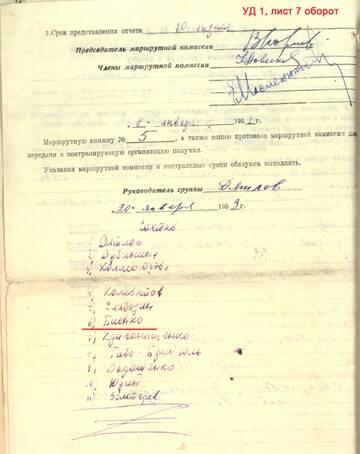 УД 1, лист 7 оборот
3. Срок представления отчета
Председатель маршрутной комиссии
Члены маршрутной комиссии
8 января 1959 г.
Маршрутную книжку № 5, а также копию протокола маршрутной комиссии для
передачи в контролирующую организацию получил.
Указания маршрутной комиссии и контрольные сроки обязуюсь выполнять.
Руководитель группы Дятлов
20 января 1959 г.
Дятлов
2) Дубинина
3) Колмогорова
4) Колеватов
5) Слободин
6) Биенко
7) Кривонищенко
8) Тибо-Бриньоль
9) Дорошенко
10) Юдин
11) Золотарев